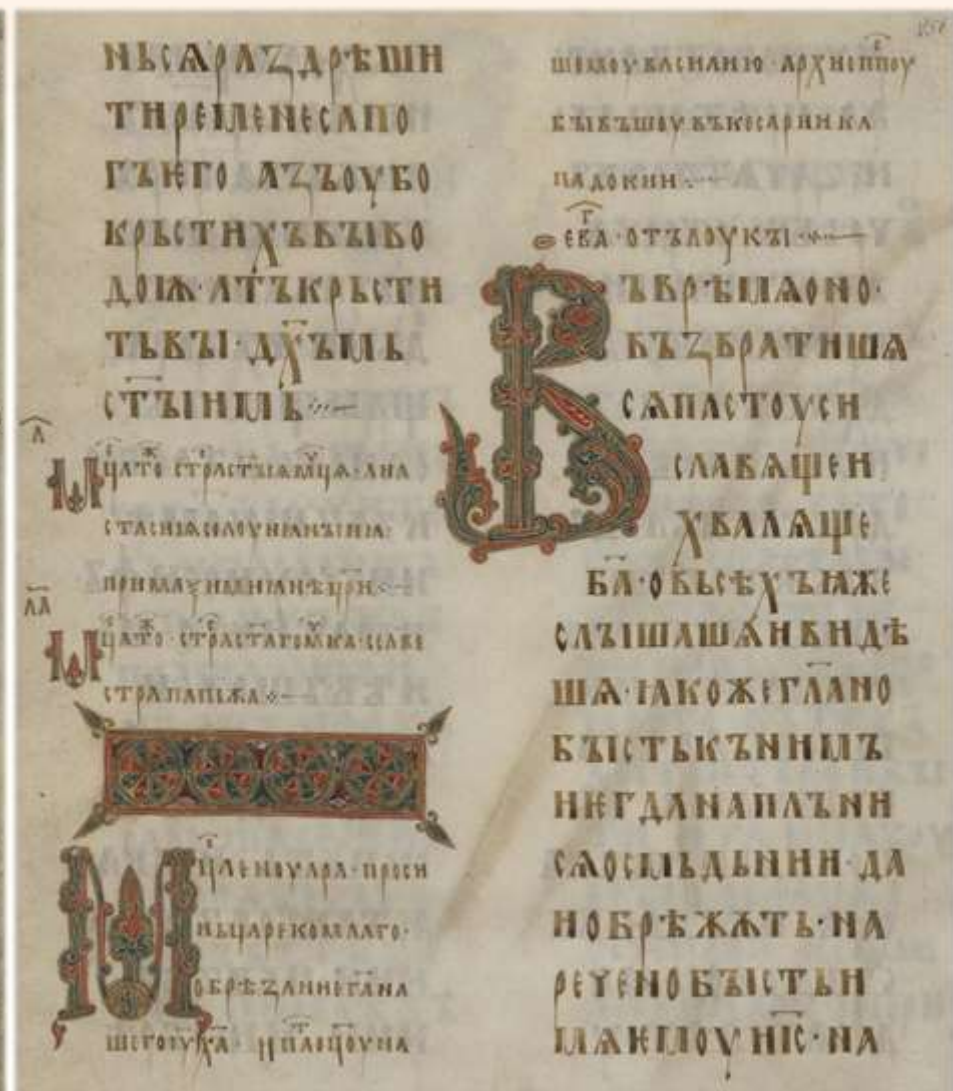 НЬСѦРАЗДРѢШИ
ТИРЕМЕНЕСАПО
ГЪѤГО АЗЪОУБО
КРЬСТИХЪВЪІВО
ДОІѪ·АТЪКРЬСТИ
ТЬВЪІ·ДХ҃ЪМЬ
СТ҃ЪІНМЬ
Л҃
МЦА ТО СТРАСТЬ МЦѦ·АНА
СТАСИѨ
ЛА҃
МЦА ТО·СТРАСТ СЕЛВЕ
СТРАПАПЕЖА
МЦА ЕНОУАРА·ПРОСИ
НЬЦАРЕКОМААГО·
ОБРѢЗАНИЕГА҃НА
ШЕГОІУХ҃А·НПАМѦ НА
ШЕМОУВАСИЛИЮ·АРХИЕППОУ
БЪІВЪШОУВЪКЕСАРИИКА
ПАДОКИИ
ЕВА·ОТЪЛОУКЪІ
ВЪВРѢМѦОНО·
ВЪЗВРАТИШѦ
СѦПАСТОУСИ
СЛАВѦЩЕИ
ХВАЛѦЩЕ
БА҃·ОВЬСѢХЪІАЖЕ
СЛЪІШАШѦИВИДѢ
ШѦ·ІАКОЖЕГЛ҃АНО
БЪІСТЬКЪНИМЪ
ИѤГДАНАПЛЪНИ
СѦОСМЬДЬНИИ·ДА
ИОБРѢЖѪТЬ·НА
РЕЧЕНОБЪІСТЬИ
МѦѤМОУИС҃·НА